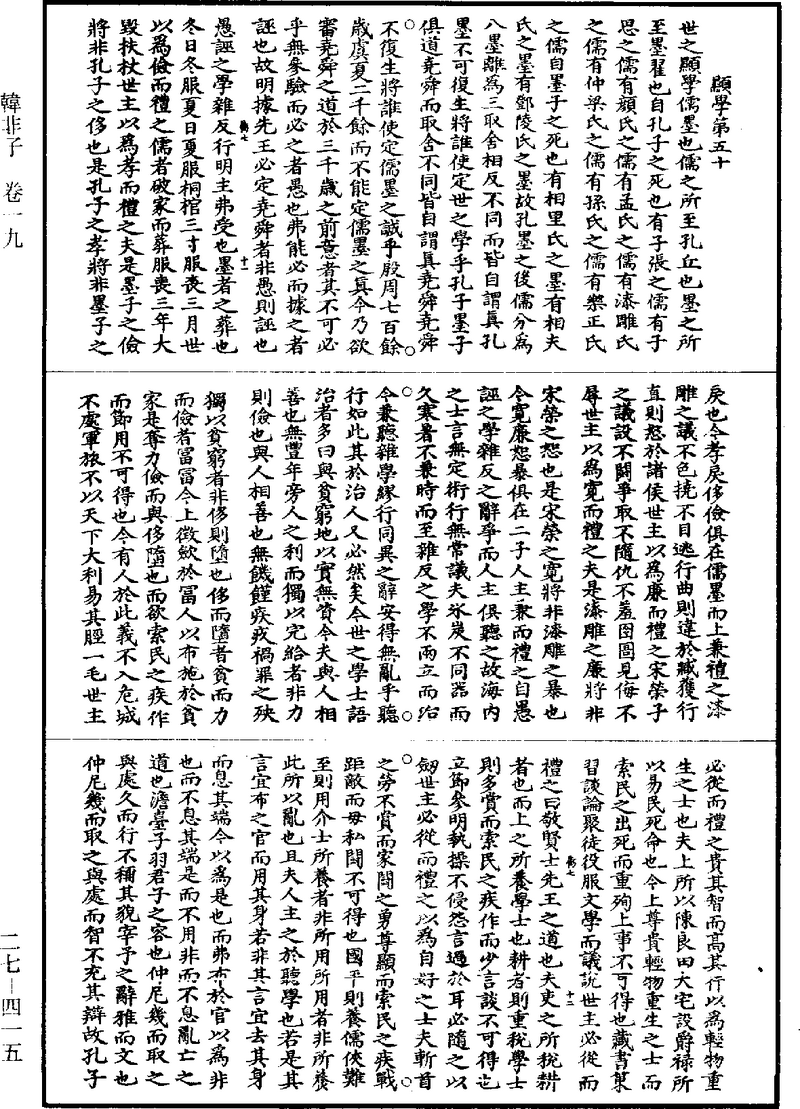 顯學第五十
世之顯學儒墨也儒之所至孔丘也墨之所
至墨翟也自孔子之死也有子張之儒有子
思之儒有顏氏之儒有孟氏之儒有漆雕氏
之儒有仲梁氏之儒有孫氏之儒有樂正氏
之儒自墨子之死也有相里氏之墨有相夫
氏之墨有鄧陵氏之墨故孔墨之後儒分爲
八墨離爲三取舍相反不同而皆自謂眞孔
墨不可復生將誰使定世之學乎孔子墨子
俱道堯舜而取舍不同皆自謂眞堯舜堯舜
不復生將誰使定儒墨之誠乎殷周七百餘
歲虞夏二千餘而不能定儒墨之眞今乃欲
審堯舜之道於三千歲之前意者其不可必
乎無參驗而必之者愚也弗能必而據之者
誣也故明據先王必定堯舜者非愚則誣也
十一
愚誣之學雜反行明主弗受也墨者之葬也
冬日冬服夏日夏服桐棺三寸服喪三月世
以爲儉而禮之儒者破家而葬服喪三年大
毀扶杖世主以爲孝而禮之夫是墨子之儉
將非孔子之侈也是孔子之孝將非墨子之
戾也今孝戾侈儉俱在儒墨而上兼禮之漆
雕之議不色撓不目逃行曲則違於臧獲行
直則怒於諸侯世主以爲廉而禮之宋榮子
之議設不鬭爭取不隨仇不羞囹圄見侮不
辱世主以爲寬而禮之夫是漆雕之廉將非
宋榮之恕也是宋榮之寬將非漆雕之暴也
今寬廉恕暴俱在二子人主兼而禮之自愚
誣之學雜反之辭爭而人主俱聽之故海內
之士言無定術行無常議夫氷炭不同器而
久寒暑不兼時而至雜反之學不兩立而治
今兼聽雜學繆行同異之辭安得無亂乎聽
行如此其於治人又必然矣今世之學士語
治者多曰與貧窮地以實無資今夫與人相
善也無豐年旁人之利而獨以完給者非力
則儉也與人相善也無饑饉疾疚禍罪之殃
獨以貧窮者非侈則墯也侈而墯者貧而力
而儉者富富今上徵歛於富人以布施於貧
家是奪力儉而與侈墯也而欲索民之疾作
而節用不可得也今有人於此義不入危城
不處軍旅不以天下大利易其脛一毛世主
必從而禮之貴其智而高其行以爲輕物重
生之士也夫上所以陳良田大宅設爵祿所
以易民死命也今上尊貴輕物重生之士而
索民之出死而重殉上事不可得也藏書策
習談論聚徒役服文學而議說世主必從而
十二
禮之曰敬賢士先王之道也夫吏之所稅耕
者也而上之所養學士也耕者則重稅學士
則多賞而索民之疾作而少言談不可得也
立節參明執操不侵怨言過於耳必隨之以
劒世主必從而禮之以爲自好之士夫斬首
之勞不賞而家鬭之勇尊顯而索民之疾戰
距敵而毋私鬭不可得也國平則養儒俠難
至則用介士所養者非所用所用者非所養
此所以亂也且夫人主之於聽學也若是其
言宜布之官而用其身若非其言宜去其身
而息其端今以爲是也而弗布於官以爲非
也而不息其端是而不用非而不息亂亡之
道也澹臺子羽君子之容也仲尼幾而取之
與處久而行不稱其貌宰予之辭雅而文也
仲尼幾而取之與處而智不充其辯故孔子
韓非子　卷一九
二七—四一五